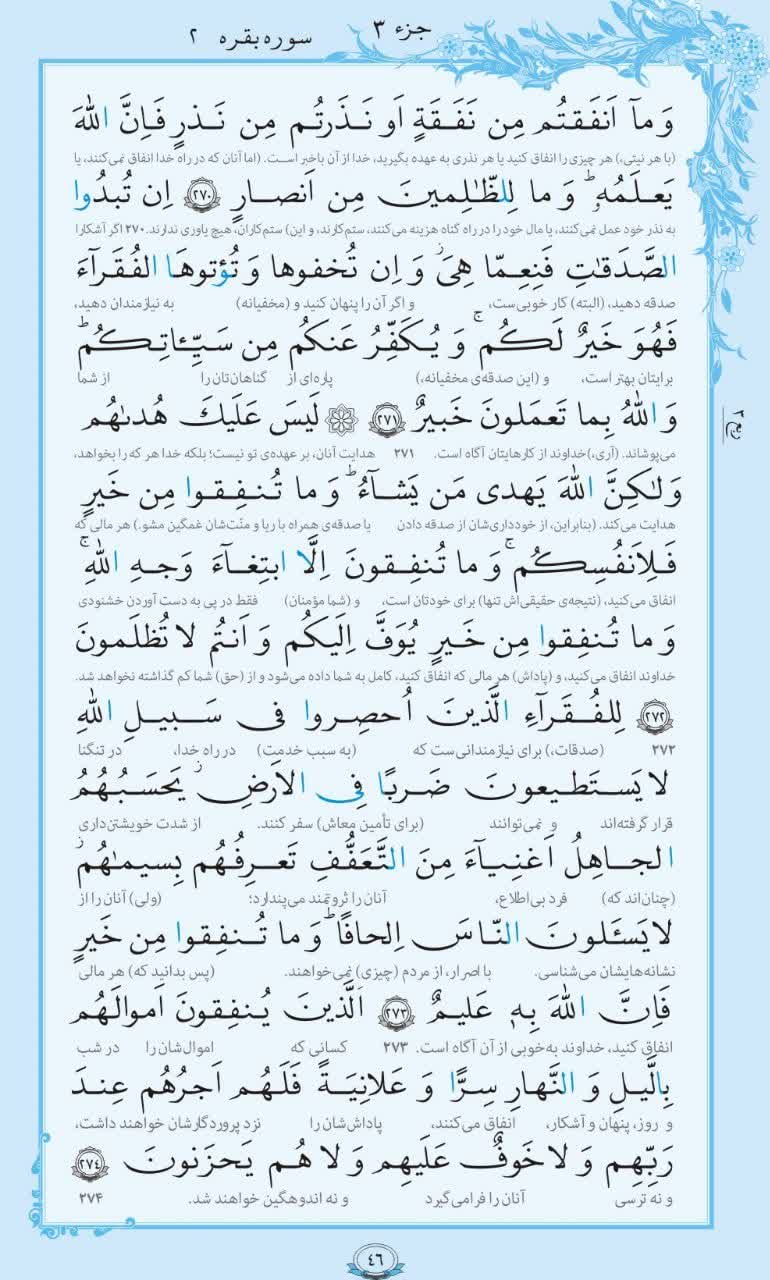 جزء ۳
سوره بقره ۲
وَ مآ اَنفَقتُم مِن نَفَقَةٍ اَو نَذَرتُم مِن نَذرٍ فَاِنَّ اللهَ
(با هر نیتی،) هر چیزی را انفاق کنید یا هر نذری به عهده بگیرید، خدا از آن باخبر است. (اما آنان که در راه خدا انفاق نمی‌کنند، یا
یَعلَمُهٗ ؕ وَ ما لِلظّٰلِمینَ مِن اَنصارٍ ﴿۲۷۰﴾ اِن تُبدُوا
به نذر خود عمل نمی‌کنند، یا مال خود را در راه گناه هزینه می‌کنند، ستم‌کارند، و این) ستم‌کاران، هیچ یاوری ندارند. ۲۷۰ اگر آشکارا
الصَّدَقٰتِ فَنِعِمّا هِیَ ؗ وَ اِن تُخفوها وَ تُؤتوهَا الفُقَرآءَ
صدقه دهید، (البته) کار خوبی‌ست، و اگر آن را پنهان کنید و (مخفیانه) به نیازمندان دهید،
فَهُوَ خَیرٌ لَکُم ۚ وَ یُکَفِّرُ عَنکُم مِن سَیِّـٔاتِکُم ؕ
برایتان بهتر است، و (این صدقه‌ی مخفیانه،) پاره‌ای از گناهان‌تان را از شما
وَ اللهُ بِما تَعمَلونَ خَبیرٌ ﴿۲۷۱﴾ ۞ لَیسَ عَلَیكَ هُدىٰهُم
می‌پوشاند. (آری،) خداوند از کارهایتان آگاه است. ۲۷۱ هدایت آنان، بر عهده‌ی تو نیست؛ بلکه خدا هر که را بخواهد،
ربع ۲
وَلٰکِنَّ اللهَ یَهدی مَن یَشآءُ ؕ وَ ما تُنفِقوا مِن خَیرٍ
هدایت می‌کند. (بنابراین، از خودداری‌شان از صدقه دادن یا صدقه‌ی همراه با ریا و منّت‌شان غمگین مشو.) هر مالی که
فَلِاَنفُسِکُم ۚ وَ ما تُنفِقونَ اِلَّا ابتِغآءَ وَجهِ اللهِ ۚ
انفاق می‌کنید، (نتیجه‌ی حقیقی‌اش تنها) برای خودتان است، و (شما مؤمنان) فقط در پی به دست آوردن خشنودی
وَ ما تُنفِقوا مِن خَیرٍ یُوَفَّ اِلَیکُم وَ اَنتُم لا تُظلَمونَ
خداوند انفاق می‌کنید، و (پاداش) هر مالی که انفاق کنید، کامل به شما داده می‌شود و از (حق) شما کم گذاشته نخواهد شد.
﴿۲۷۲﴾ لِلفُقَرآءِ الَّذینَ اُحصِروا فی سَبیلِ اللهِ
۲۷۲ (صدقات،) برای نیازمندانی‌ست که (به سبب خدمت) در راه خدا، در تنگنا
لا یَستَطیعونَ ضَربًا فِی الاَرضِ ؗ یَحسَبُهُمُ
قرار گرفته‌اند و نمی‌توانند (برای تأمین معاش) سفر کنند. از شدت خویشتن‌داری
الجاهِلُ اَغنِیآءَ مِنَ التَّعَفُّفِ تَعرِفُهُم بِسیمٰهُم ؗ
(چنان‌اند که) فرد بی‌اطلاع، آنان را ثروتمند می‌پندارد؛ (ولی) آنان را از
لا یَسـَٔلونَ النّاسَ اِلحافًا ؕ وَ ما تُنفِقوا مِن خَیرٍ
نشانه‌هایشان می‌شناسی. با اصرار، از مردم (چیزی) نمی‌خواهند. (پس بدانید که) هر مالی
فَاِنَّ اللهَ بِهٖ عَلیمٌ ﴿۲۷۳﴾ اَلَّذینَ یُنفِقونَ اَموالَهُم
انفاق کنید، خداوند به‌خوبی از آن آگاه است. ۲۷۳ کسانی که اموال‌شان را در شب
بِالَّیلِ وَ النَّهارِ سِرًّا وَ عَلانِیَةً فَلَهُم اَجرُهُم عِندَ
و روز، پنهان و آشکار، انفاق می‌کنند، پاداش‌شان را نزد پروردگارشان خواهند داشت،
رَبِّهِم وَ لا خَوفٌ عَلَیهِم وَ لا هُم یَحزَنونَ ﴿۲۷۴﴾
و نه ترسی آنان را فرامی‌گیرد و نه اندوهگین خواهند شد. ۲۷۴
٤٦